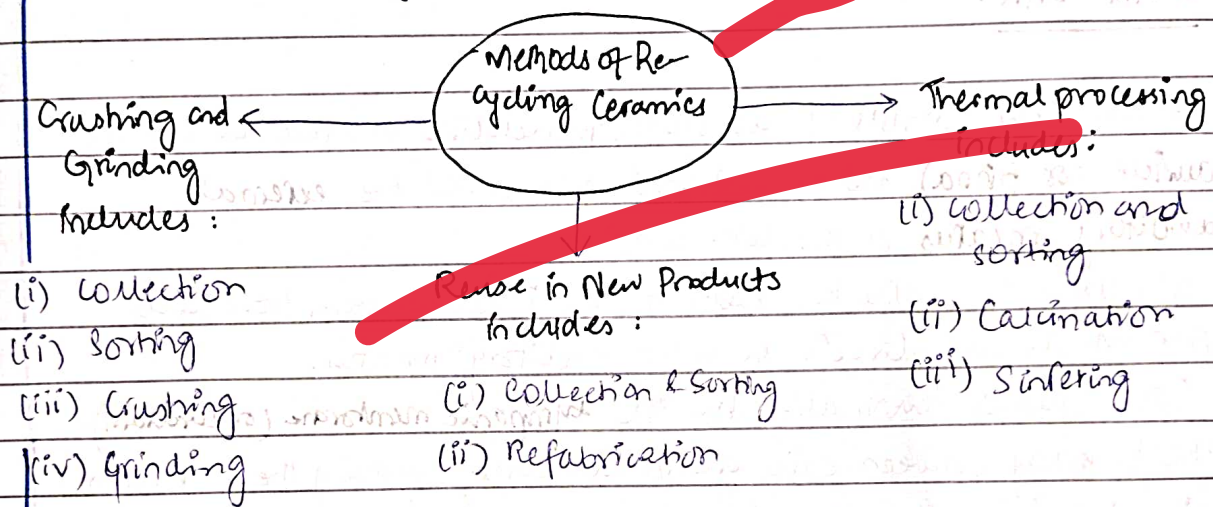 Methods of Re-
cycling Ceramics
Crushing and
Grinding
includes :
(i) Collection
(ii) Sorting
(iii) Crushing
(iv) Grinding
Reuse in New Products
includes :
(i) Collection & Sorting
(ii) Refabrication
Thermal processing
includes :
(i) Collection and
sorting
(ii) Calcination
(iii) Sintering